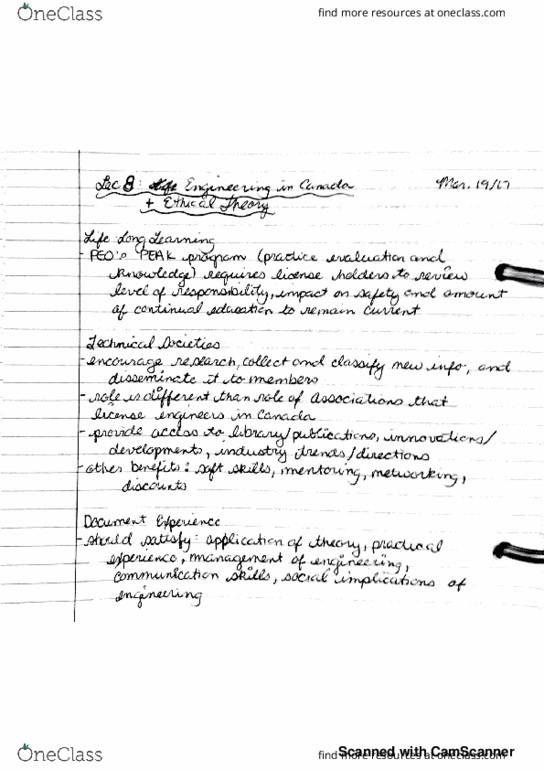 OneClass
find more resources at oneclass.com
Lec 8: Engineering in Canada
Mar. 19/17
+ Ethical Theory
Life Long Learning
- PEO's PEAK program (practice evaluation and
knowledge) requires license holders to review
level of responsibility, impact on safety and amount
of continual education to remain current
Technical Societies
- encourage research, collect and classify new info, and
disseminate it to members
- role is different than role of associations that
license engineers in Canada
- provide access to library/publications, innovations/
developments, industry trends/directions
- other benefits: soft skills, mentoring, networking,
discounts
Document Experience
- should satisfy: application of theory, practical
experience, management of engineering,
communication skills, social implications of
engineering
OneClass
find more resources at oneclass.com
Scanned with CamScanner